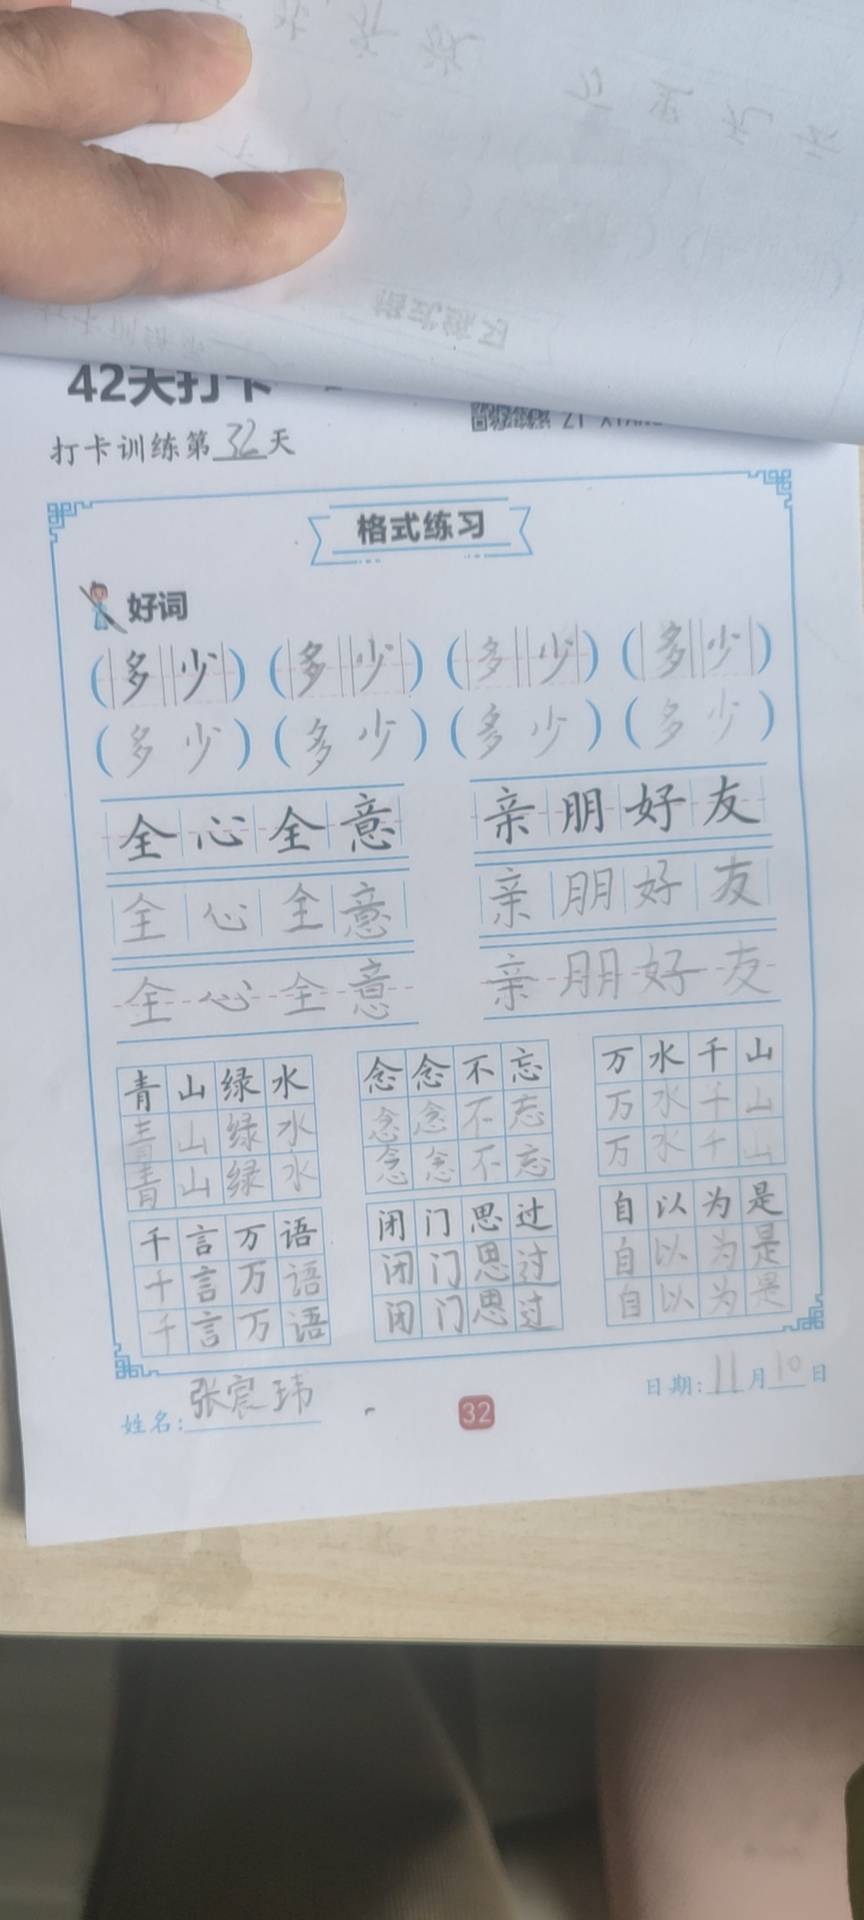 42天打卡
打卡训练第32天
格式练习
好词
(多少) (多少) (多少) (多少)
(多少) (多少) (多少) (多少)
全心全意 亲朋好友
全心全意 亲朋好友
全心全意 亲朋好友
青山绿水 念念不忘 万水千山
青山绿水 念念不忘 万水千山
青山绿水 念念不忘 万水千山
千言万语 闭门思过 自以为是
千言万语 闭门思过 自以为是
千言万语 闭门思过 自以为是
姓名:张宸玮 32 日期:11月10日